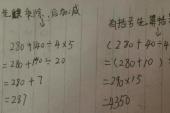 先乘除,后加减
280+140÷4×5
=280+140÷20
=280+7
=287
有括号先算括
(280+40÷4
=(280+10)
=290×15
=4350